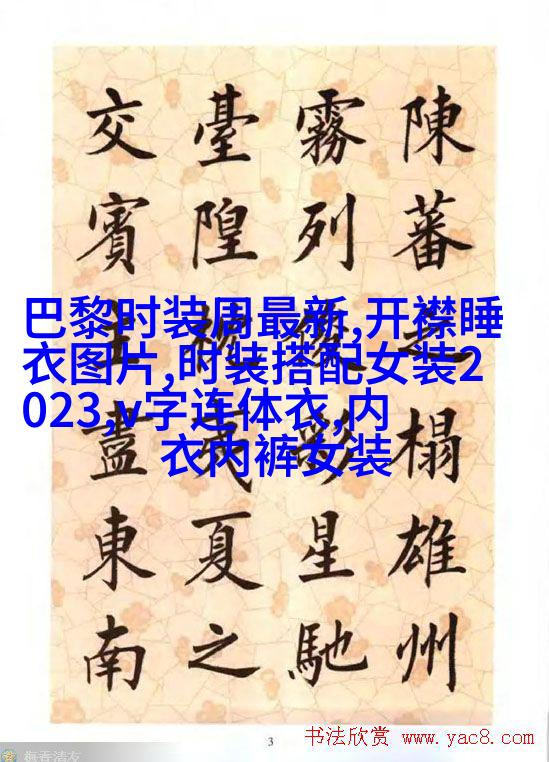 陳蕃榻雄州
霧列彩星馳
臺隍夷夏之
交賓盡東南
巴黎时装周最新,开襟睡
衣图片,时装搭配女装2
023,v字连体衣,内
衣内裤女装
3
书法欣赏 www.yac8.com